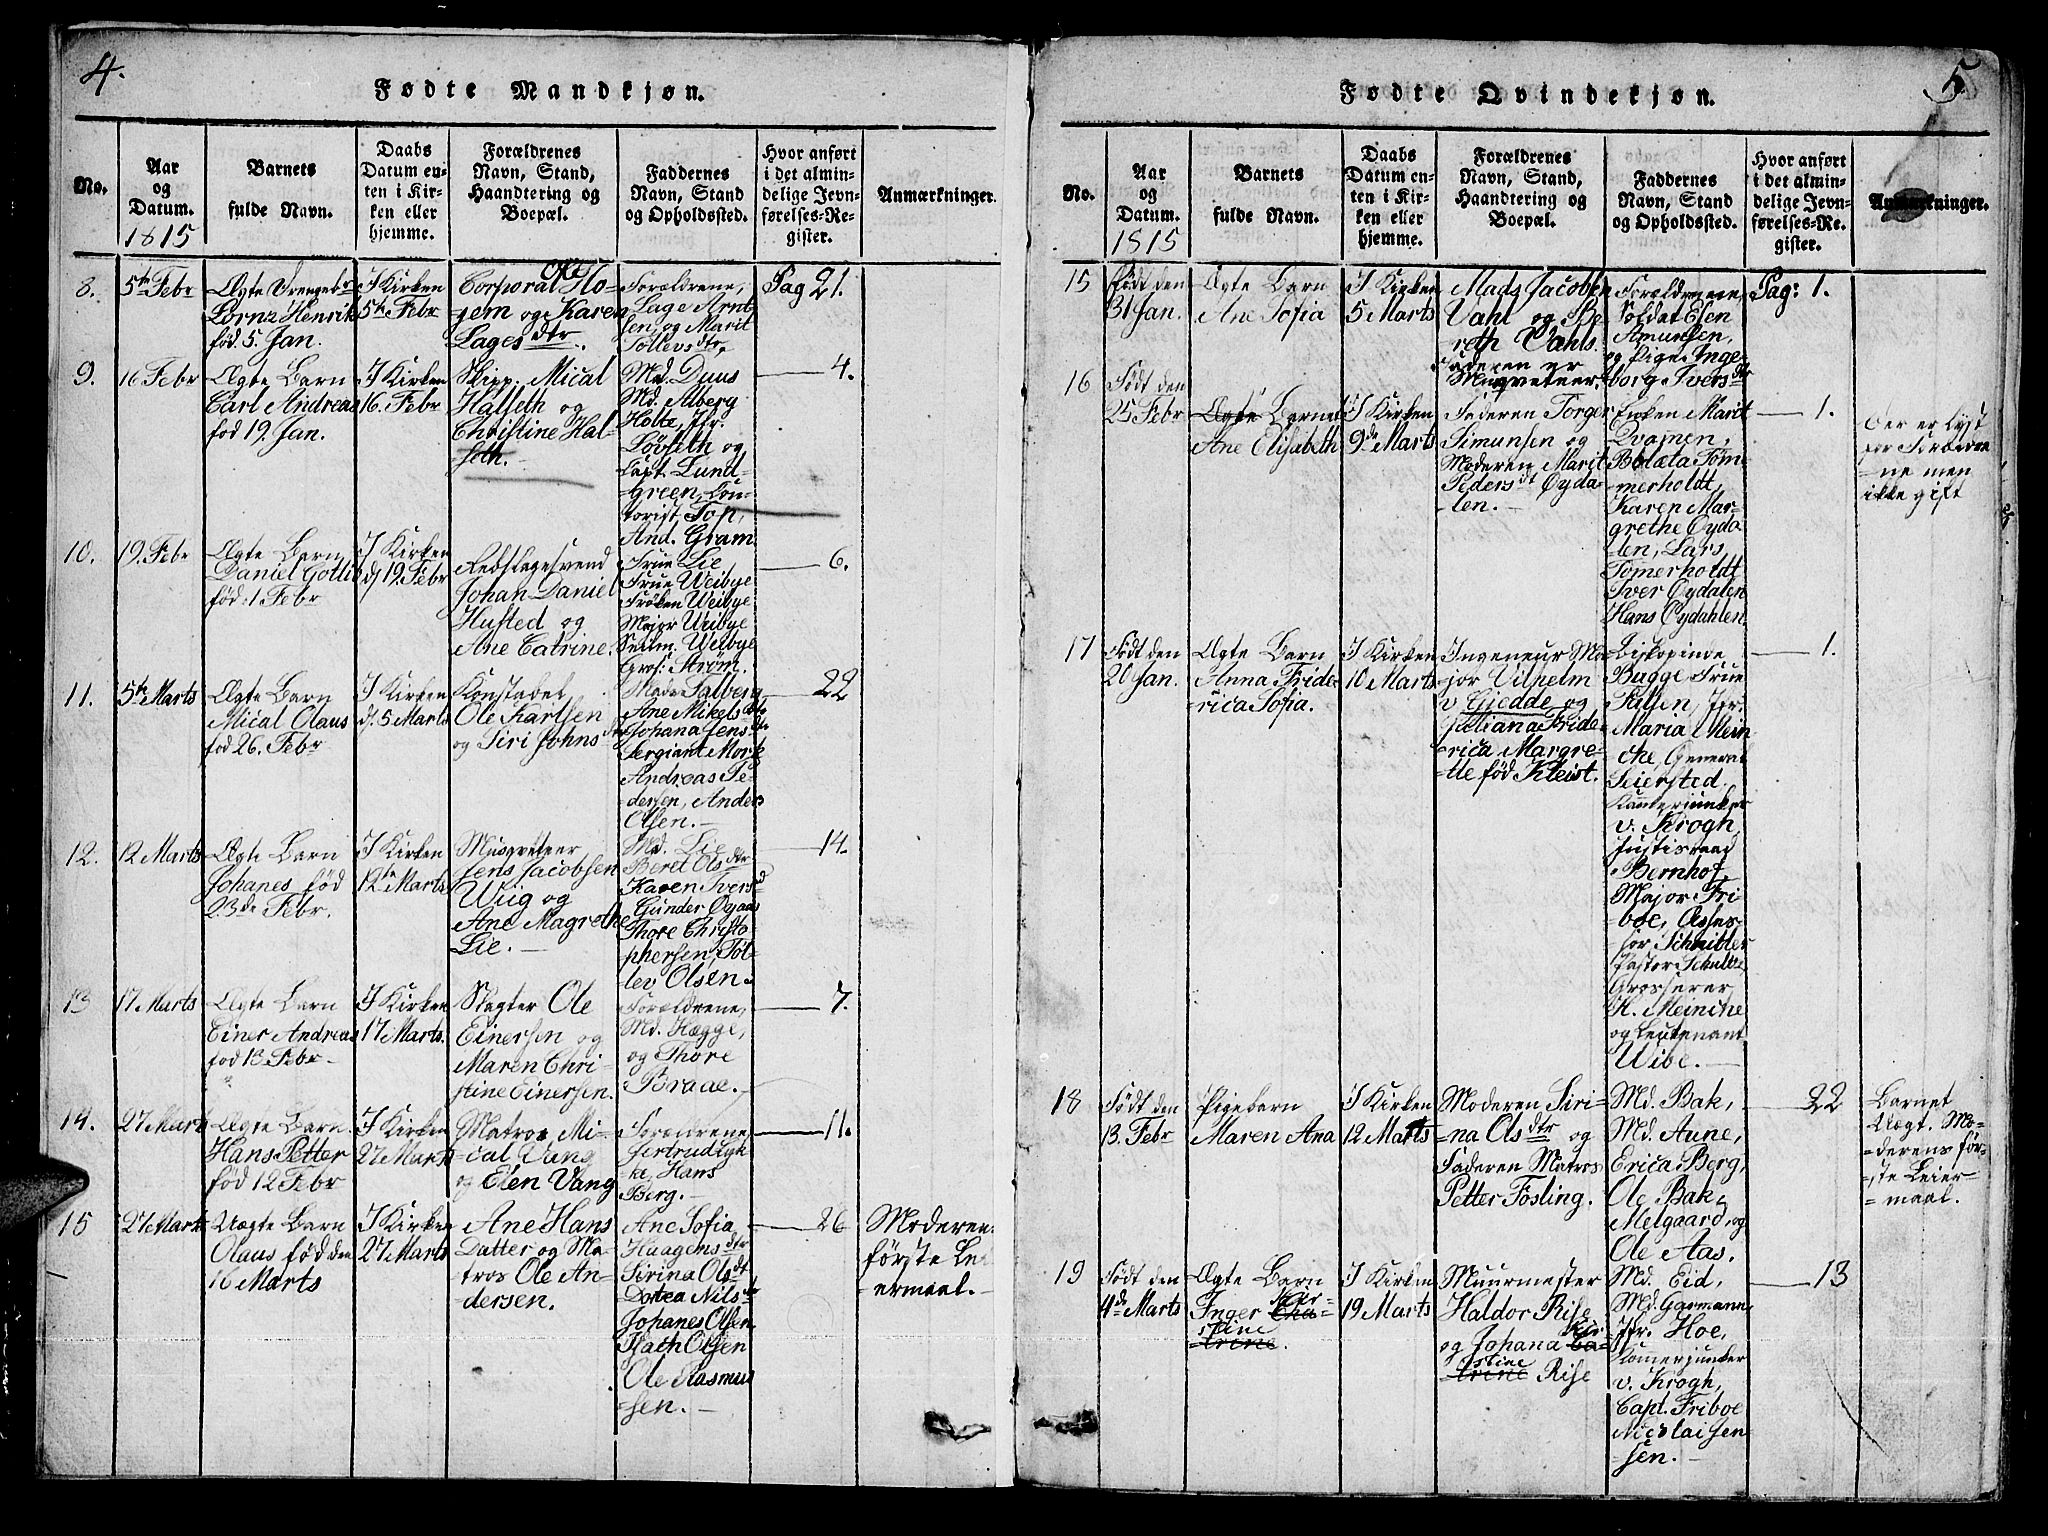 4.
Fødte Mandkjøn.
No.
Aar
og
Datum.
1815
Barnets
fulde Navn.
Daabs
Datum en-
ten i Kir-
ken eller
hjemme.
Forældrenes
Navn, Stand,
Haandtering og
Boepæl.
Faddernes
Navn, Stand
og Opholdssted.
Hvor anført
i det almin-
delige Jevn-
førelses-Re-
gister.
Anmærkninger.
8.
5te Febr
Ægte Drengebr
Lornz Henrik
fød. 5. Jan.
I Kirken
5te Febr
Corporal Ole Ho-
gem og Karen
Lages dtr.
Forældrene,
Lage Arnt
sen, og Marit
Tollevs dtr.
Pag 21.
9.
16 Febr
Ægte Barn
Carl Andreas
fød 19. Jan.
I Kirken
16. Febr
Skipp. Mical
Halseth og
Christine Hal-
seth.
Md. Duus
Md. Alberg
Holte, Jfr.
Løvseth og
Capt. Lund-
green, Con-
torist Top,
And. Gram
4.
10.
19. Febr
Ægte Barn
Daniel Gotlib
fød. 1 Febr
I Kirken
d. 19. Febr
Rebslagesvend
Johan Daniel
Husted og
Ane Catrine.
Frue Lie
Frue Weibye
Frøken Weibye
Major Weibye
Weibye
Gros: Strøm.
6.
11.
5te Marts
Ægte Barn
Mical Olaus
fød 26. Febr
I Kirken
d. 5 Marts
Konstabel
Ole Karlsen
og Siri Johns dtr
Made Salberg
Ane Mikels dtr
Johana Jens dtr
Sergiant Mork
Andreas Pe-
dersen, Anders
Olsen.
22
12.
12 Marts
Ægte Barn
Johanes fød
23de Febr.
I Kirken
12te Marts
Musqveteer
Jens Jacobsen
Wiig og
Ane Magrethe
Lie.
Md. Lie
Beret Ols dtr
Karen Ivers d
Gunder Øyaas
Thore Christo-
phersen, Tol-
lev Olsen.
14.
13
17 Marts
Ægte Barn
Einer Andreas
fød 13 Febr
I Kirken
17 Marts.
Slagter Ole
Einersen og
Maren Chri-
stine Einersen.
Forældrene,
Md. Hægge,
og Thore
Braae.
7.
14.
27 Marts
Ægte Barn.
Hans Petter
fød 12 Febr
I Kirken
27 Marts
Matros Mi-
cal Vang
og Elen Vang
Forældrene
Hans
Berg.
11.
15
27 Marts
Uægte Barn
Olaus fød den
16 Marts
I Kirken
27 Marts
Ane Hans
Datter og Ma-
tros Ole An-
dersen.
Ane Sofia
Haagens dtr
Sirina Ols dt
Dortea Nils dtr
Johanes Olsen
Olsen
Ole Rasmus
sen.
26
Moderens
første Le-
ermaal.
5
Fødte Qvindekjøn.
No.
Aar
og
Datum.
1815
Barnets
fulde Navn.
Daabs
Datum en-
ten i Kir-
ken eller
hjemme.
Forældrenes
Navn, Stand,
Haandtering og
Boepæl.
Faddernes
Navn, Stand
og Opholdssted.
Hvor anført
i det almin-
delige Jevn-
førelses-Re-
gister.
Anmærkninger.
15
Født den
31 Jan.
Ægte Barn
Ane Sofia
I Kirken
5 Marts
Mads Jacobsen
Vahl og Be-
reth Vahls.
Faderen er
Musqveteer
Forældrene,
Soldat Elen
Amunsen,
og Pige Inge-
borg Ivers dtr
Pag: 1.
16
Født den
25 Febr
Ægte Barnet
Ane Elisabeth
I Kirken
9de Marts
Faderen Torger
Simunsen og
Moderen Marit
Peders dt Øyda-
len.
Enken Marit
Qvamen,
Bolæta Tøm-
merholdt,
Karen Mar-
grethe Øyda
len, Lars
Tømerholdt
Iver Øydalen
Hans Øydahlen
1.
Der er lyst
for Forældre
ne men
ikke gift
17
Født den
20 Jan.
Ægte Barn
Anna Fride-
rica Sofia.
I Kirken
10 Marts
Ingeneur Ma-
jor Vilhelm
v Giedde og
Juliana Fride-
rica Margre-
tte fød Kleist.
Biskopinde
Bugge Frue
Følsen, Jfr.
Maria Mein
cke, General
Seiersted,
Kammerjunker
v. Krogh,
Justisraad
Bernhof,
Major Fri-
boe, Asses-
sor Schnitler
Pastor Schultze
Grosserer
H. Meincke
og Leutenant
Wibe.
1.
18
Født den
13. Febr
Pigebarn
Maren Ana
I Kirken
12 Marts
Moderen Siri-
na Ols dtr og
Faderen Matros
Petter Fosling.
Md. Bak,
Md. Aune,
Erica Berg,
Ole Bak,
Melgaard, og
Ole Aas.
22
Barnet
Uægt. Mo-
derens før-
ste Leier-
maal.
19
Født den
4de Marts
Ægte Barn
Inger Kir-
stine
I Kirken
19 Marts
Muurmester
Haldor Rise
og Johana Kir-
stine Rise
Md. Eid,
Md. Garmann
Jfr. Hoe,
Kamerjunker
v. Krogh,
Capt. Friboe
Nicolai Jen-
sen.
13